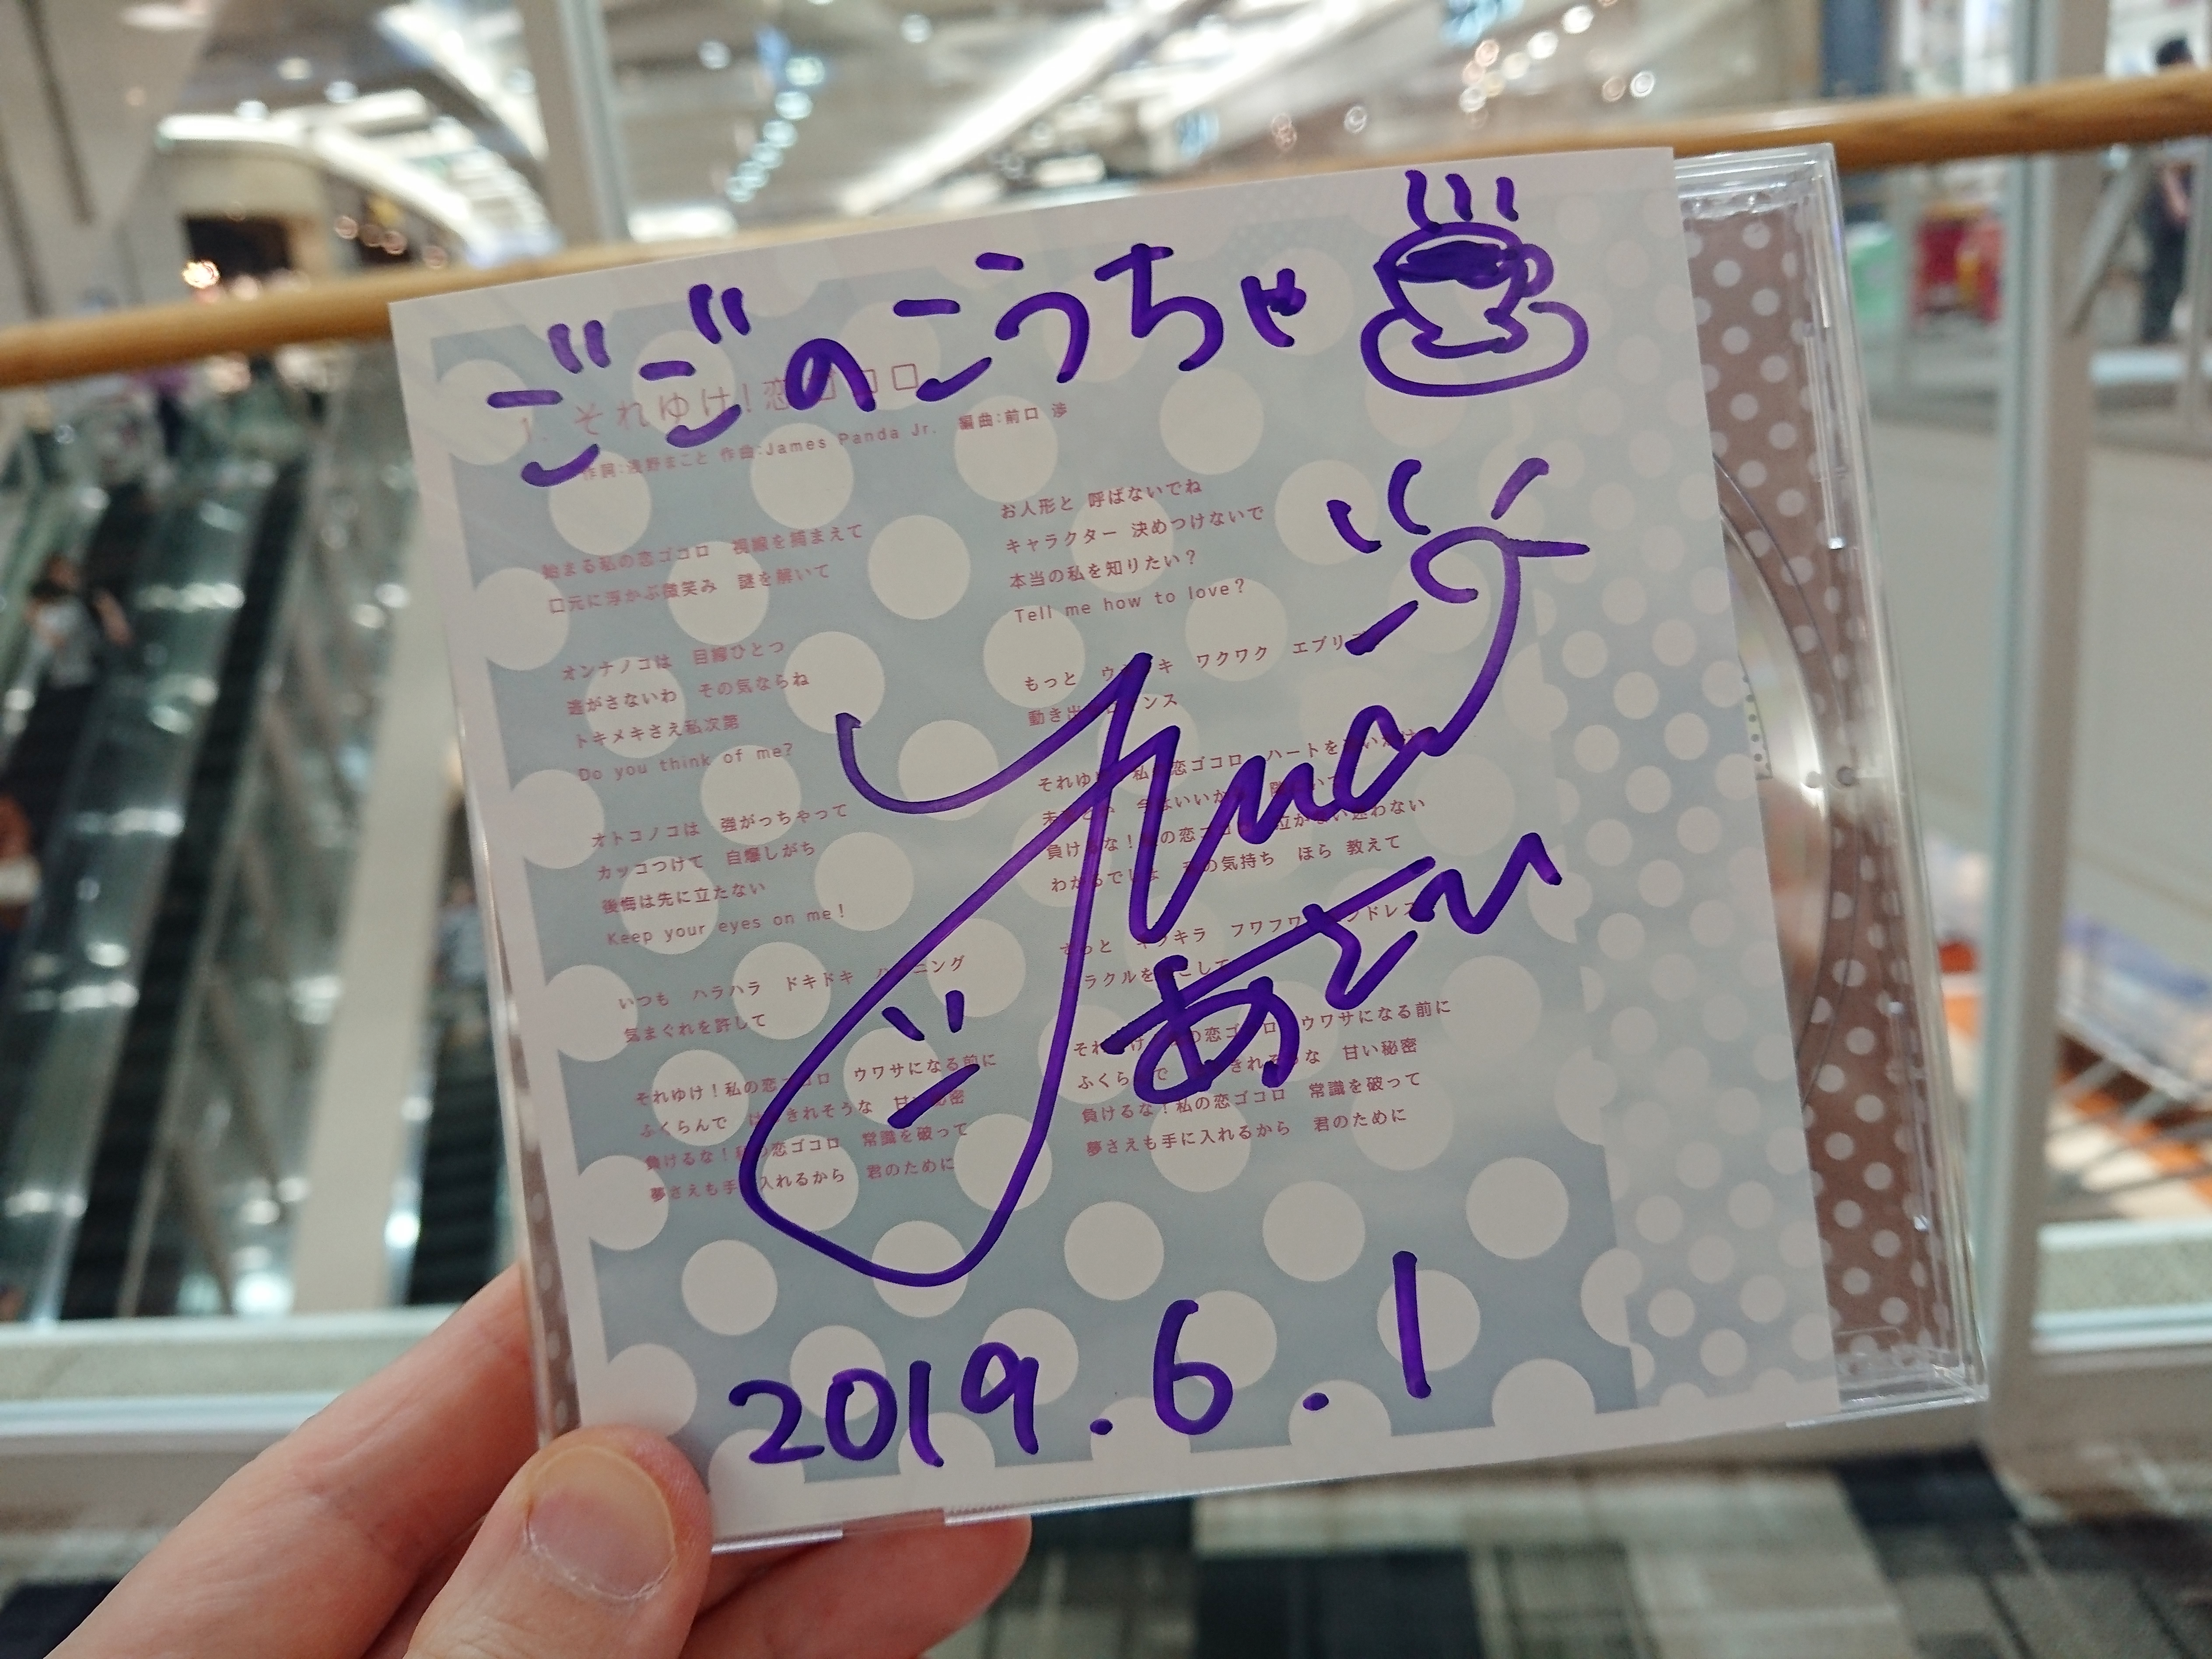 ごごのこうちゃ
1. それゆけ!恋ゴコロ
作詞:浅野まこと 作曲:James Panda Jr. 編曲:前口 渉
始まる私の恋ゴコロ 視線を捕まえて
口元に浮かぶ微笑み 謎を解いて
オンナノコは 目線ひとつ
逃がさないわ その気ならね
トキメキさえ私次第
Do you think of me?
オトコノコは 強がっちゃって
カッコつけて 自爆しがち
後悔は先に立たない
Keep your eyes on me!
いつも ハラハラ ドキドキ
気まぐれを許して
それゆけ!私の恋ゴコロ ウワサになる前に
ふくらんで はちきれそうな 甘い秘密
負けるな!私の恋ゴコロ 常識を破って
夢さえも手に入れるから 君のために
お人形と 呼ばないでね
キャラクター 決めつけないで
本当の私を知りたい?
Tell me how to love?
もっと ウキウキ ワクワク エブリデイ
動き出す ロマンス
それゆけ!私の恋ゴコロ ハートを
今はいいから
負けるな!私の恋ゴコロ 迷わない
わかるでしょ 私の気持ち ほら 教えて
きっと キラキラ フワフワ エンドレス
ミラクルを起こして
それゆけ!私の恋ゴコロ ウワサになる前に
ふくらんで はちきれそうな 甘い秘密
負けるな!私の恋ゴコロ 常識を破って
夢さえも手に入れるから 君のために
2019.6.1